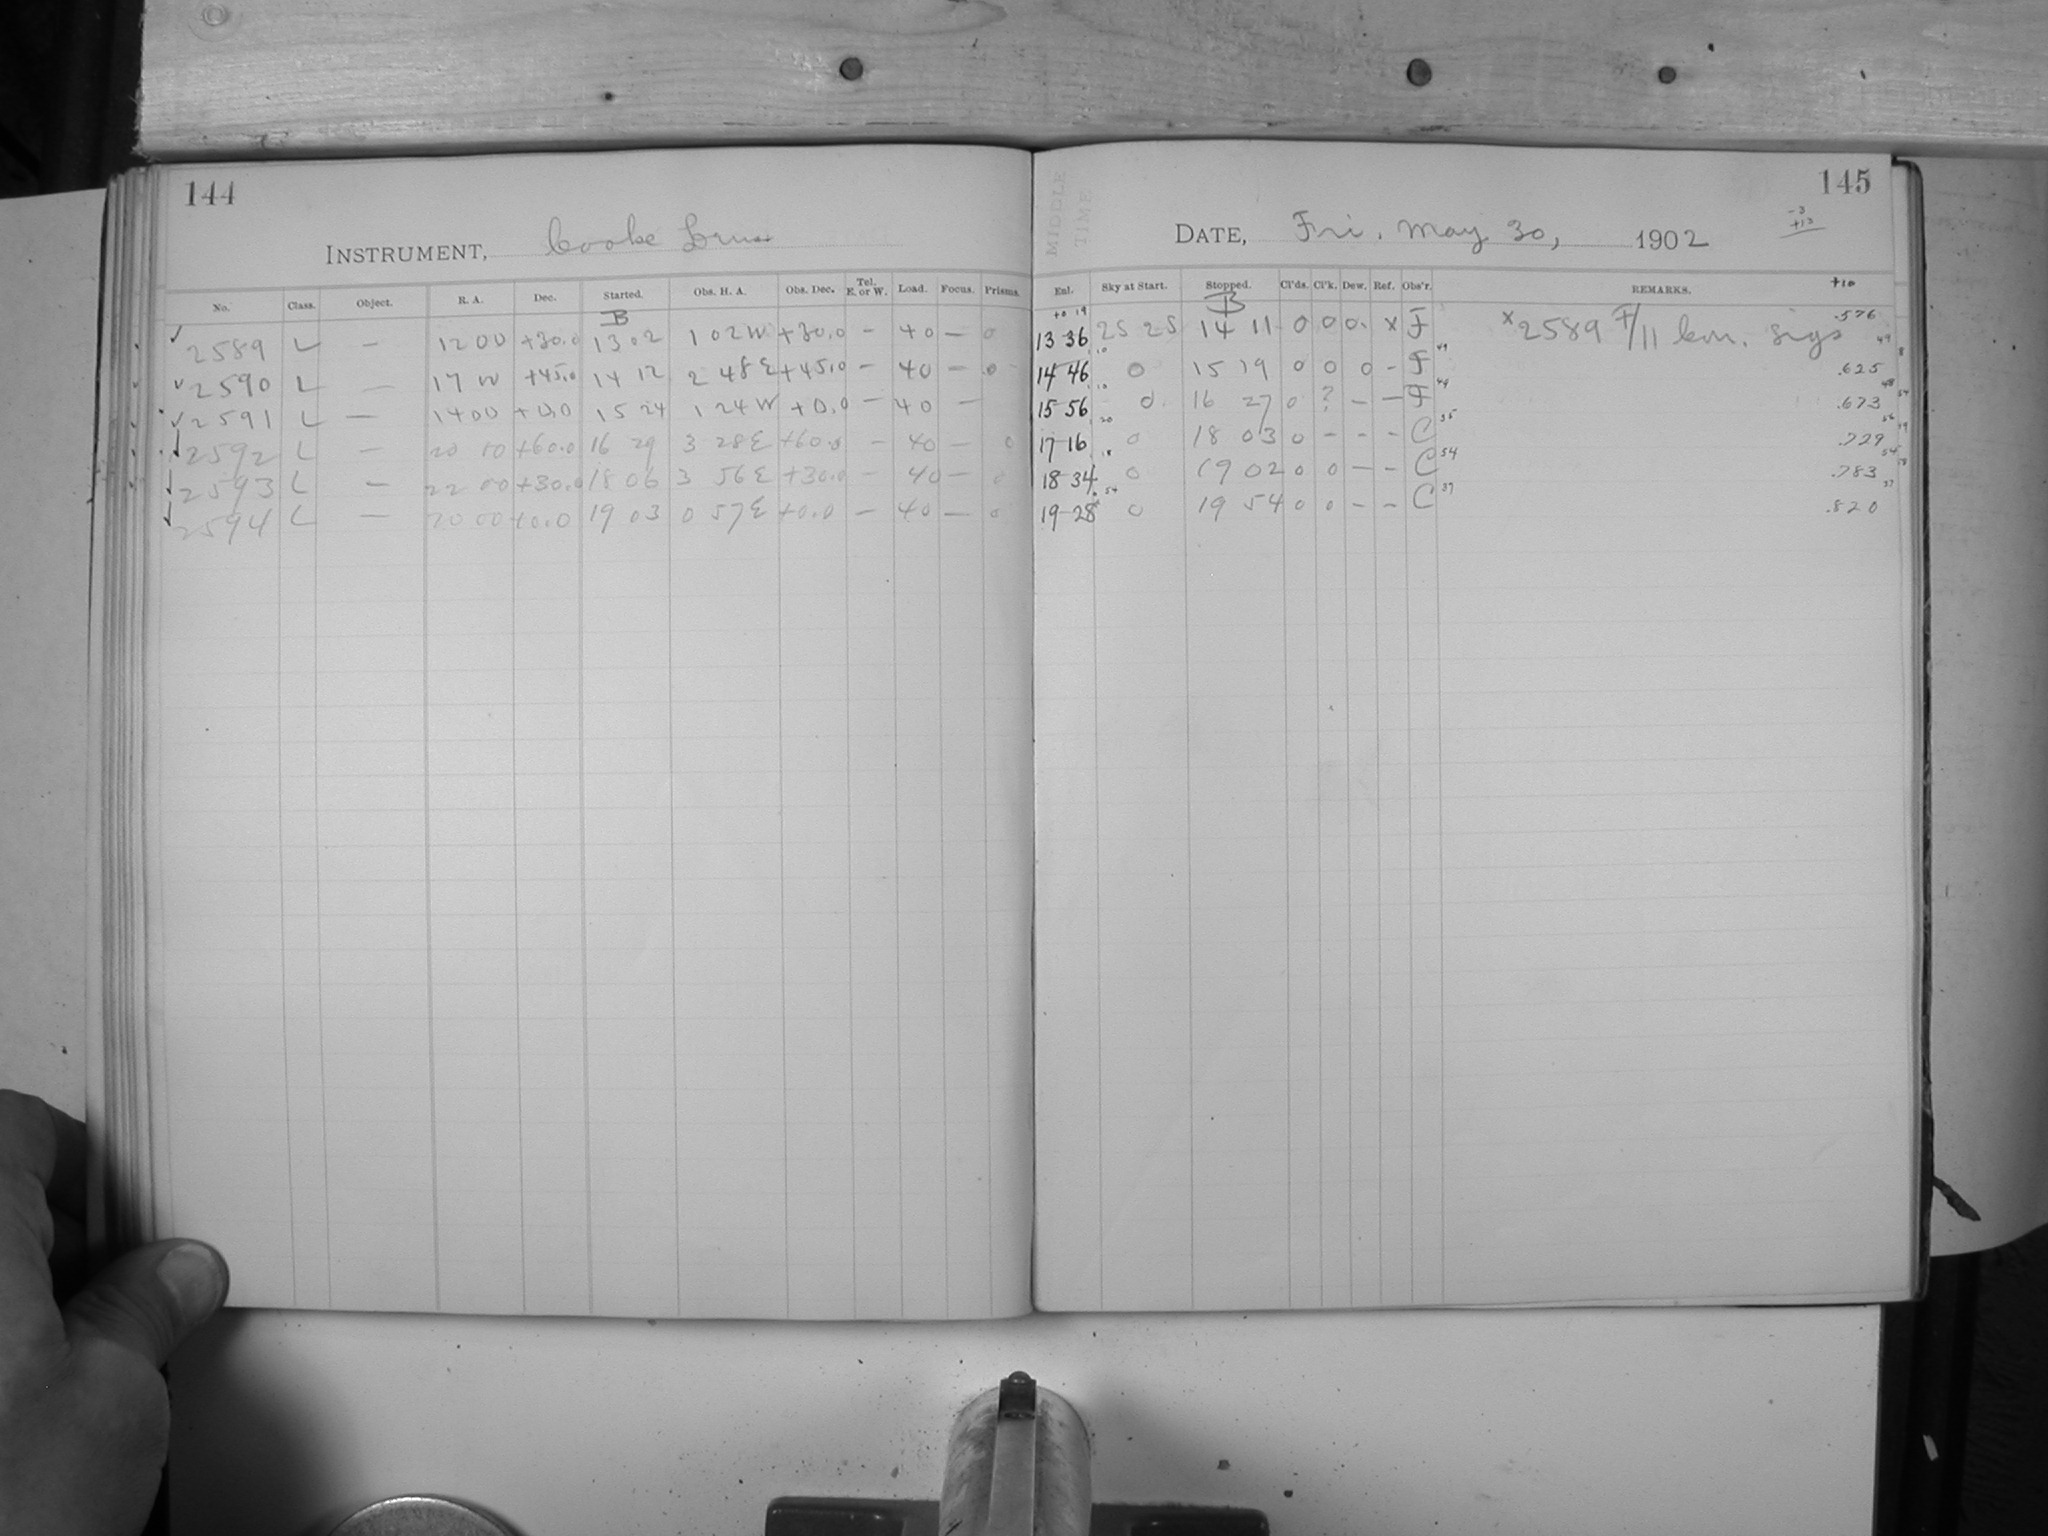 144
INSTRUMENT, Cooke Lens
No. Class. Object. R. A. Dec. Started. Obs. H. A. Obs. Dec. Tel. E. or W. Load. Focus. Prisms.
B
2589 L — 12 00 +30.0 13 02 1 02 W +30.0 — 40 — 0
2590 L — 17 00 +45.0 14 12 2 48 E +45.0 — 40 — 0
2591 L — 14 00 +0.0 15 24 1 24 W +0.0 — 40 —
2592 L — 20 00 +60.0 16 29 3 28 E +60.0 — 40 — 0
2593 L — 22 00 +30.0 18 06 3 56 E +30.0 — 40 — 0
2594 L — 20 00 +0.0 19 03 0 57 E +0.0 — 40 — 0
145
MIDDLE TIME
-3
+13
DATE, Fri. May 30, 1902
Exl. Sky at Start. Stopped. Cl'ds. Cl'k. Dew. Ref. Obs'r. REMARKS. +10
B
13 36 2S 2S 14 11 0 0 0. x F x 2589 F/11 sigs .576
14 46 0 15 19 0 0 0 - F .625
15 56 0 16 27 0 ? — — F .673
17 16 0 18 03 0 - - - C .729
18 34 0 19 02 0 0 — - C .783
19 28 0 19 54 0 0 — - C .820